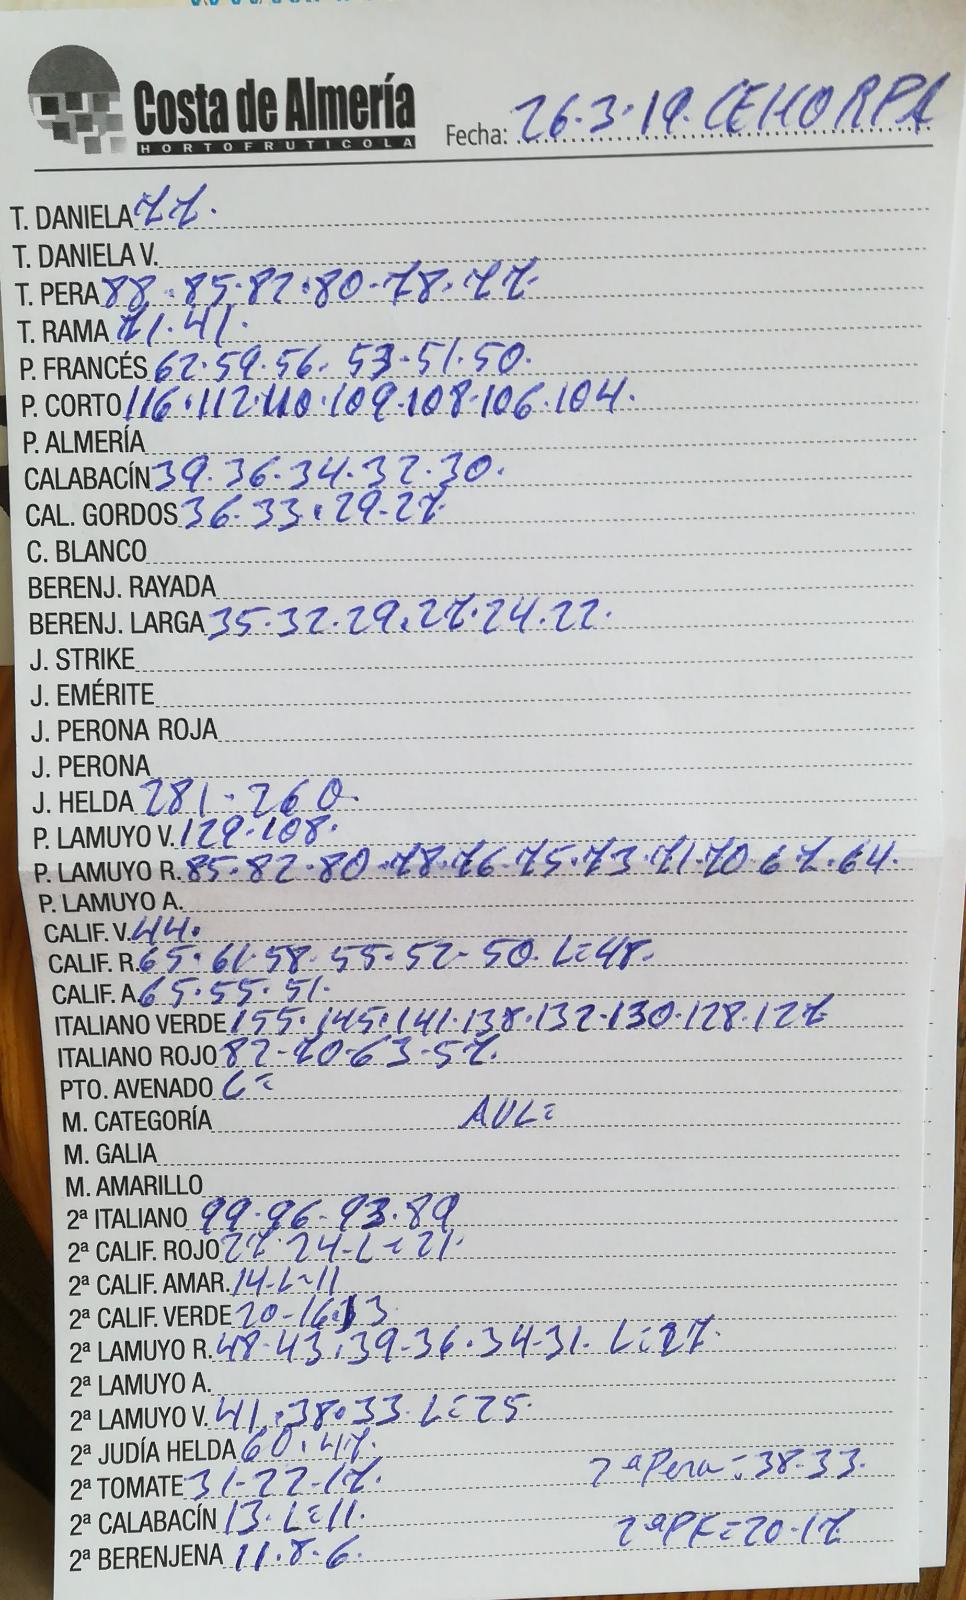 Costa de Almería
HORTOFRUTICOLA
Fecha: 26.3.19. CEHORPA
T. DANIELA 77.
T. DANIELA V.
T. PERA 88.85.82.80.78.77.
T. RAMA 71.41.
P. FRANCÉS 62.59.56.53.51.50.
P. CORTO 116.112.110.109.108.106.104.
P. ALMERÍA
CALABACÍN 39.36.34.32.30.
CAL. GORDOS 36.33.29.27
C. BLANCO
BERENJ. RAYADA
BERENJ. LARGA 35.32.29.27.24.22.
J. STRIKE
J. EMÉRITE
J. PERONA ROJA
J. PERONA
J. HELDA 281.260.
P. LAMUYO V. 129.108.
P. LAMUYO R. 85.82.80.78.76.75.73.71.70.67.64.
P. LAMUYO A.
CALIF. V. 44.
CALIF. R. 65.61.58.55.52-50. L=48.
CALIF. A. 65.55.51.
ITALIANO VERDE 155.145.141.138.132.130.128.127
ITALIANO ROJO 82-70-63-57.
PTO. AVENADO L=
M. CATEGORÍA AVL=
M. GALIA
M. AMARILLO
2ª ITALIANO 99.96-93.89
2ª CALIF. ROJO 27 24-L=21.
2ª CALIF. AMAR. 14-L=11
2ª CALIF. VERDE 20-16.13
2ª LAMUYO R. 48-43.39-36.34-31. L=27.
2ª LAMUYO A.
2ª LAMUYO V. 41.38.33. L=25.
2ª JUDÍA HELDA 60.47.
2ª TOMATE 31-22-17. 2ª Pera=38-33.
2ª CALABACÍN 13. L=11. 2ª PF=20-17
2ª BERENJENA 11.8-6.